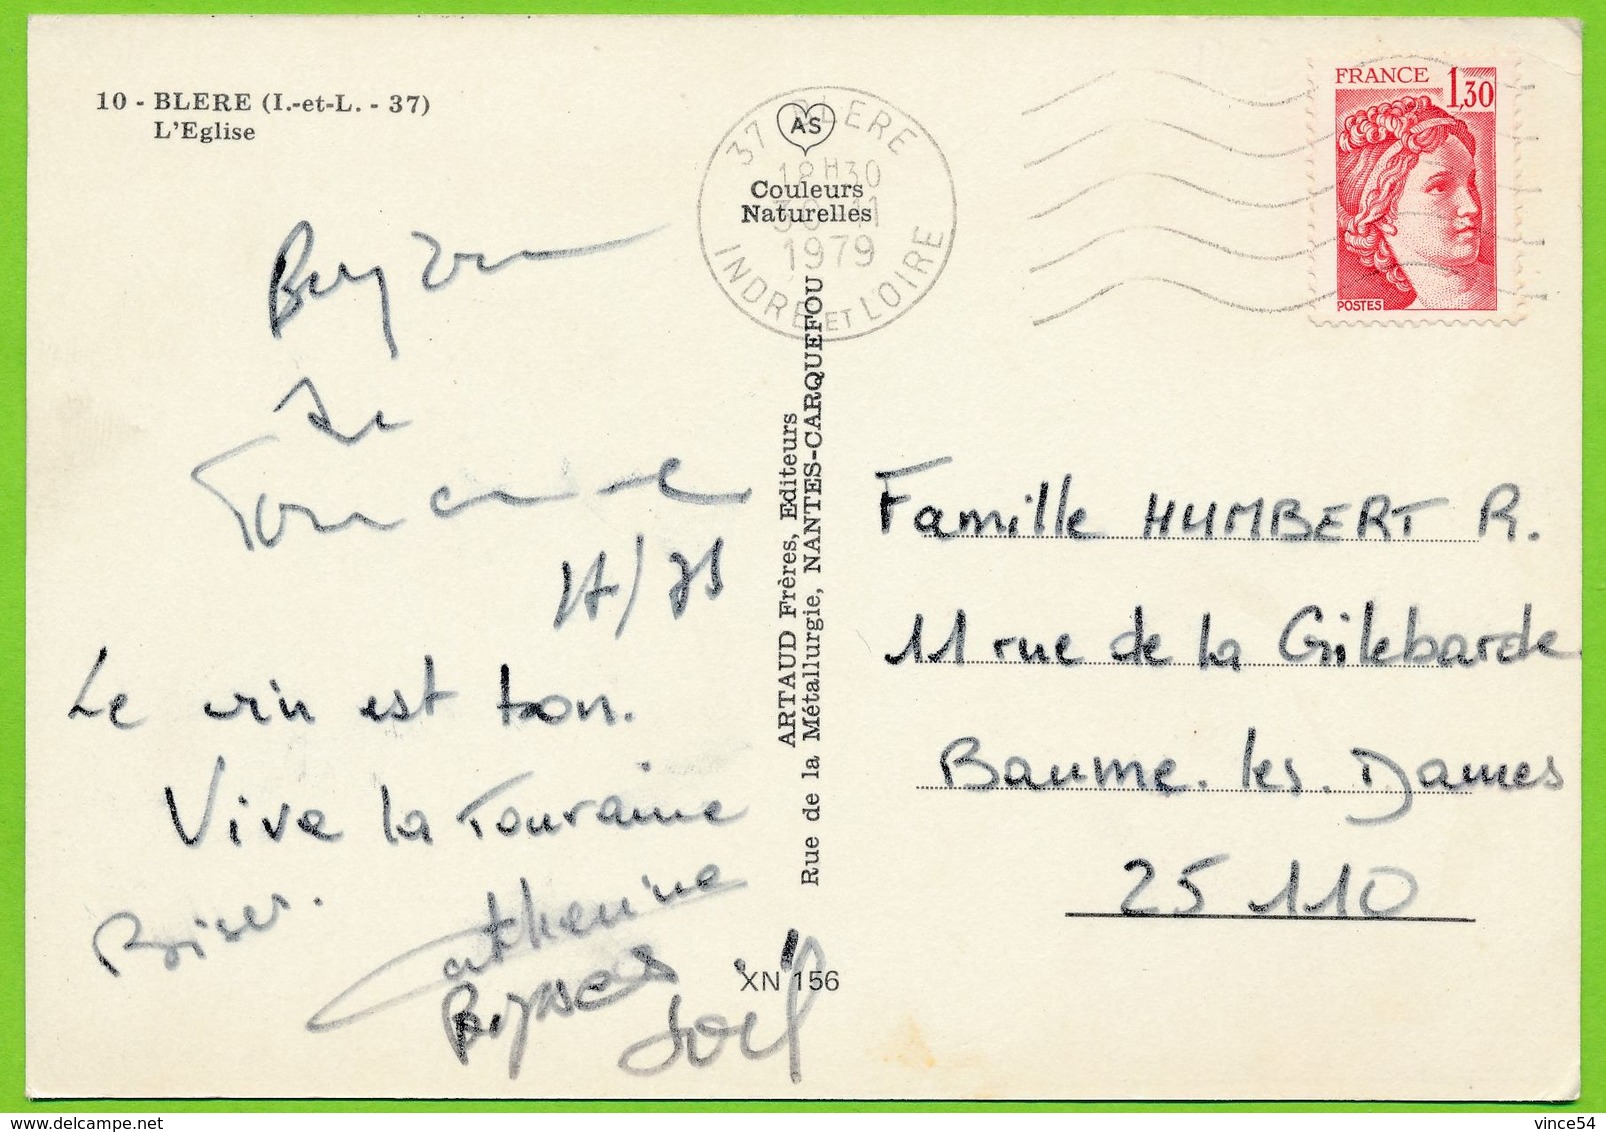 10 - BLERE (I.-et-L. - 37)
L'Eglise
AS
Couleurs
Naturelles
37 BLERE
18H30
30-11
1979
INDRE ET LOIRE
FRANCE
1,30
POSTES
Touraine
Le vin est bon.
Vive la Touraine
Bises.
Catherine
Joël
ARTAUD Frères, Editeurs
Rue de la Métallurgie, NANTES-CARQUEFOU
XN 156
Famille HUMBERT R.
11 rue de la Gilebarde
Baume.les.Dames
25 110
www.delcampe.net
vince54